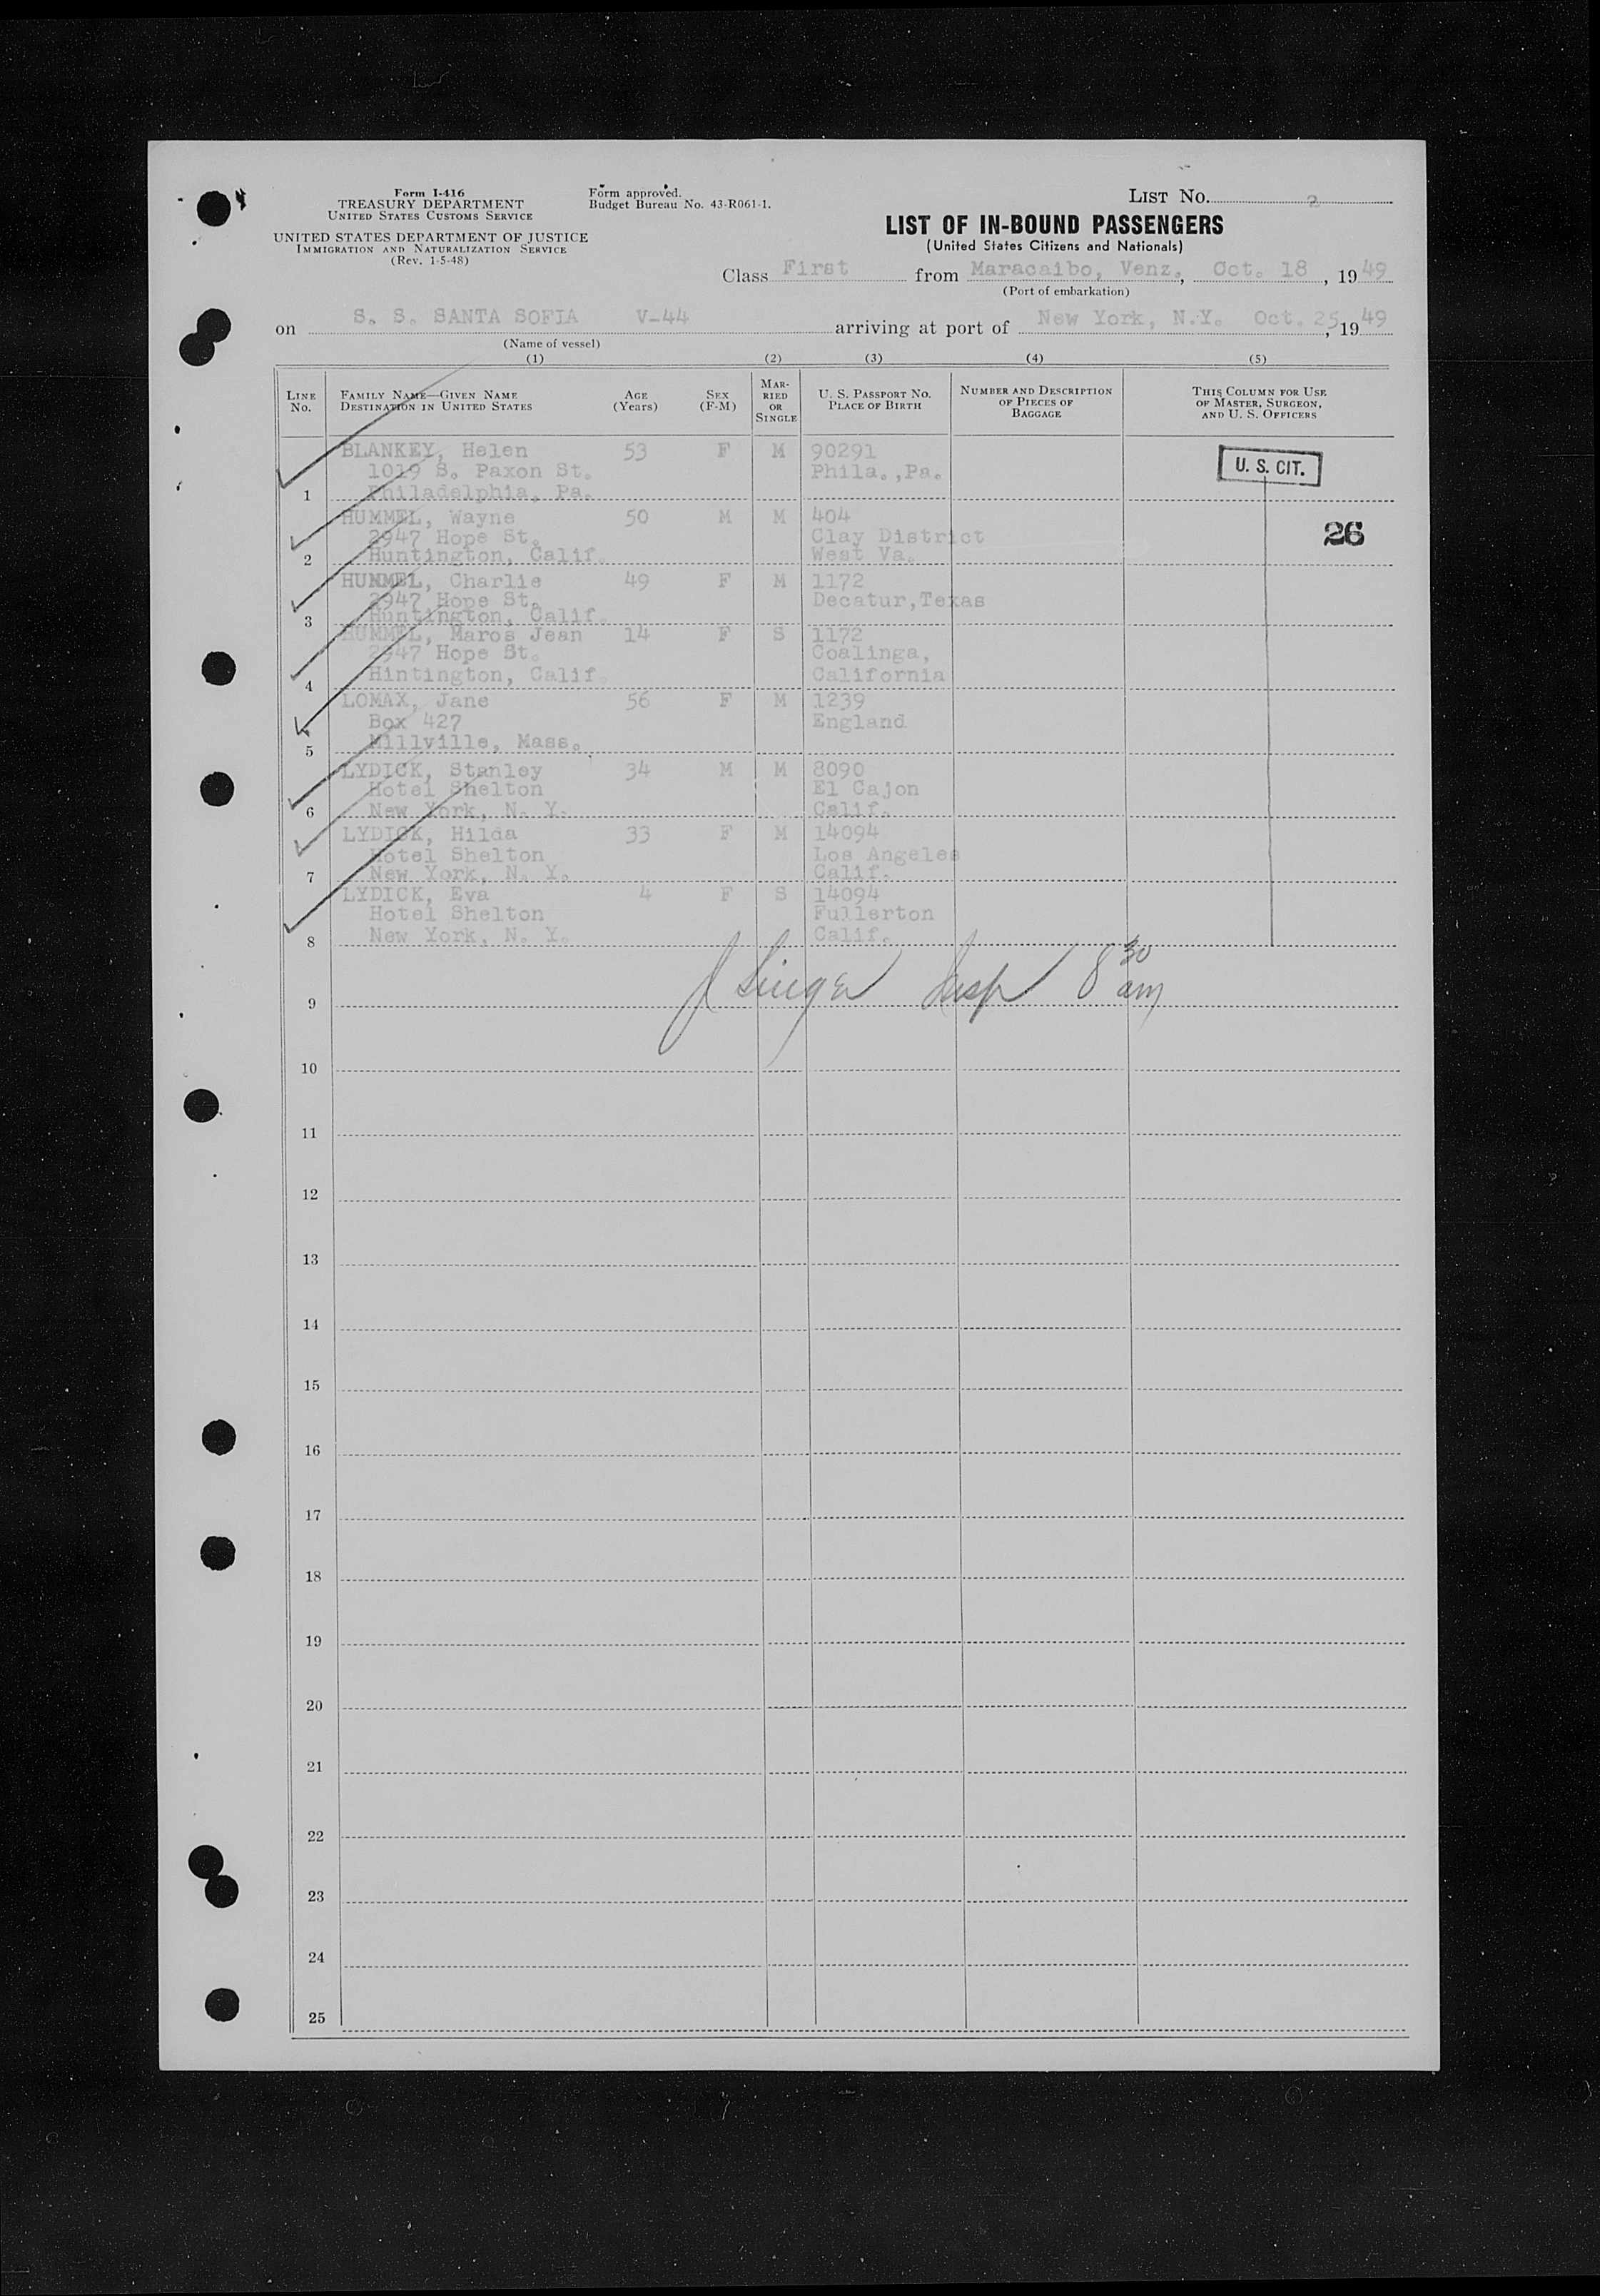 Form I-416
TREASURY DEPARTMENT
UNITED STATES CUSTOMS SERVICE
UNITED STATES DEPARTMENT OF JUSTICE
IMMIGRATION AND NATURALIZATION SERVICE
(Rev. 1-5-48)
Form approved.
Budget Bureau No. 43-R061-1.
LIST NO. 2
LIST OF IN-BOUND PASSENGERS
(United States Citizens and Nationals)
Class First from Maracaibo, Venz., Oct. 18, 1949
(Port of embarkation)
on S. S. SANTA SOFIA V-44 arriving at port of New York, N.Y. Oct. 25, 1949
(Name of vessel)
(1) (2) (3) (4) (5)
LINE No.
FAMILY NAME—GIVEN NAME
DESTINATION IN UNITED STATES
AGE (Years)
SEX (F-M)
MARRIED OR SINGLE
U. S. PASSPORT NO.
PLACE OF BIRTH
NUMBER AND DESCRIPTION OF PIECES OF BAGGAGE
THIS COLUMN FOR USE OF MASTER, SURGEON, AND U. S. OFFICERS
BLANKEY, Helen 53 F M 90291
1019 S. Paxon St. Phila.,Pa.
1 Philadelphia, Pa.
U. S. CIT.
HUMMEL, Wayne 50 M M 404
2947 Hope St. Clay District
2 Huntington, Calif. West Va.
26
HUMMEL, Charlie 49 F M 1172
2947 Hope St. Decatur,Texas
3 Huntington, Calif.
HUMMEL, Maros Jean 14 F S 1172
2947 Hope St. Coalinga,
4 Hintington, Calif. California
LOMAX, Jane 56 F M 1239
Box 427 England
5 Millville, Mass.
LYDICK, Stanley 34 M M 8090
Hotel Shelton El Cajon
6 New York, N. Y. Calif.
LYDICK, Hilda 33 F M 14094
Hotel Shelton Los Angeles
7 New York, N. Y. Calif.
LYDICK, Eva 4 F S 14094
Hotel Shelton Fullerton
8 New York, N. Y. Calif.
J Singer Insp 8 30 am
9
10
11
12
13
14
15
16
17
18
19
20
21
22
23
24
25